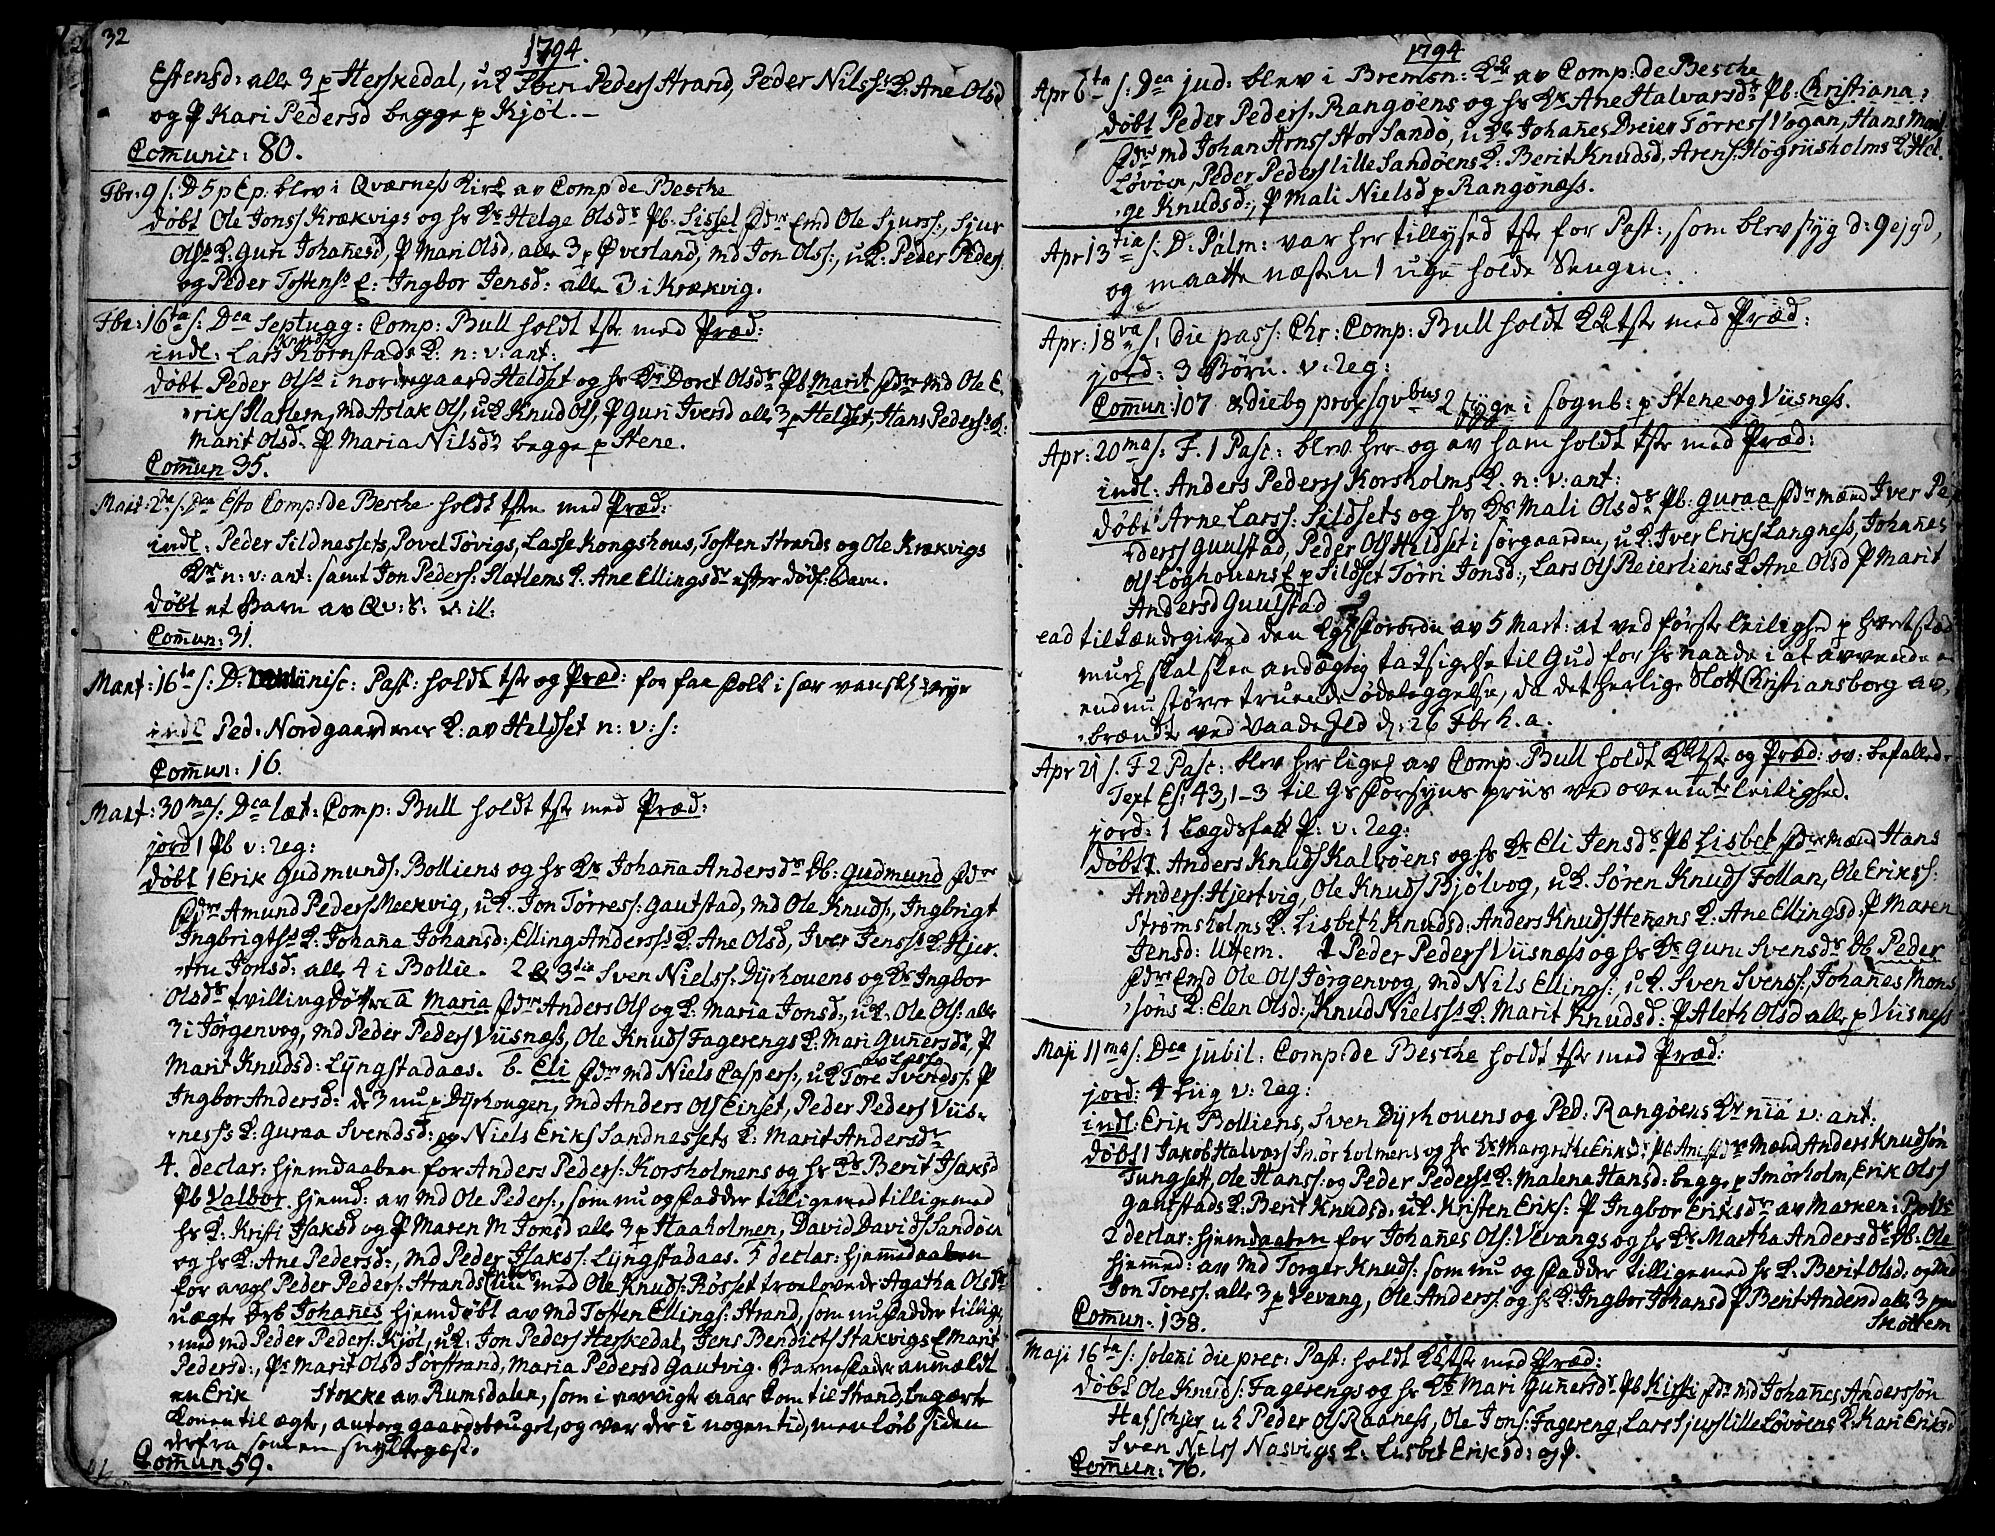 32
1794.
Estensd: alle 3 p Herskedal, uk Iben Peders Strand, Peder Nilss: K: Ane Olsd
og P Kari Pedersd begge p Kjøl. –
Comunic: 80.
Fbr: 9 s: D 5 p Ep. blev i Qværness Kirk av Comp de Besche
døbt Ole Jonss Krækvigs og hs Ks Helge Olsds Pb: Sissel fdre Emd Ole Sjurss:, Sjur
Olss K: Guri Johanesd, P Mari Olsd, alle 3 p Øverland, md Jon Olss:, uk: Peder Peders
og Peder Tostenss E: Ingbor Jensd: alle 3 i Krækvig.
Fbr: 16ta s: Dca Septugg: Comp: Bull holdt tste med Præd:
indl: Lars Knuds Kornstads K: n: v: ant:
døbt Peder Olss i nordregaard Heldset og hs Ks Doret Olsds Pb Marit fdre Md Ole E.
riks Slatlem, md Aslak Ols, uk Knud Ols, P Guri Iversd alle 3 p Heldset, Hans Peders: K:
Marit Olsd. P Maria Nilsd: begge p Stene.
Comun 35.
Mart: 2da s: Dca Esto Comp: de Besche holdt tsten med Præd:
indl: Peder Sildnessets, Povel Tøvigs, Lasse Kongshous, Tosten Strands og Ole Krækvigs
Kr n: v: ant: samt Jon Peders: Slatlems K: Ane Ellingsdr efter dødf: barn.
døbt et Barn av Qv: S: v: ill:
Comun: 31.
Mart: 16ta s: D: Reminisc: Past: holdt tste og Præd: for faa Folk i sær vanskl: Veyr
indl Ped. Nordgaardens K: av Heldset n: v: s:
Comun: 16.
Mart: 30ma s: Dca læt: Comp: Bull holdt tste med Præd:
jord 1 Pb v: Leg:
døbt 1 Erik Gudmunds: Bolliens og hs Ks Johana Andersds Db: Gudmund fdre
fdre Amund Peders Meekvig, uk. Jon Tørress: Gautstad, Md Ole Knuds:, Ingbrigt
Ingbrigts: K: Johana Johansd: Elling Anderss: K: Ane Olsd, Iver Jenss: K: Hjer.
tru Jonsd: alle 4 i Bollie. 2 & 3tie Sven Niels: Dyrhouens og Ks Ingbor
Olsds tvillingdøttre a Maria fdre Anders Ols og K: Maria Jonsd:, uk: Ole Ols: alle
3 i Jørgenvog, md Peder Peders Viisnæss, Ole Knuds Fagerengs K: Mari Gunersd:, P
Marit Knudsd: Lyngstadaas. b. Eli fdre md Niels Caspers:, uk Tore Svends: P
Ingbor Andersd: de 3 nu p Dyrhougen, md Anders Ols Einset, Peder Peders Viis-
ness: K: Guraa Svendsd: og Niels Eriks Sandnessets K: Marit Andersdr
4. declar: hjemdaaben for Anders Peders: Korsholmens og hs Ks Berit Isaksd
Pb Valbor. hjemd: av md Ole Peders:, som nu og fadder tilligemed tilligemed
hs K: Kristi Isaksd og P Maren M Jonsd alle 3 p Haaholmen, David Davids Sandøen
og hs K: Ane Pedersd:, md Peder Isaks: Lyngstadaas. 5 declar: hjemmedaaben
for avg Peder Peders: Strands Enke med Ole Knuds: Rosset troelovede Agatha Olsds
uægte Db Johanes hjemdøbt av md Tosten Ellings: Strand, som nu fadder tillige
med md Peder Peders: Kjøl, uk: Jon Peders Herskedal, Jens Bendicts Stakvigs E Marit
Pedersd:, Ps Marit Olsd Sørstrand, Maria Pedersd Gautvig. Barnefader anmældt
en Erik Stokke av Rumsdalen, som i nævigte aar kom til Strand, begærte
Konen til ægte, antog gaardsbruget, og var der i nogen tid, men løb siden
derfra som en snyltegæst.
Comun 59.
1794
Apr 6ta s: Dca jud: blev i Bremsn: Kk av Comp: de Besche
døbt Peder Peders, Rangøens og hs Ks Ane Halvarsds Pb: Kristiana:
fdre md Johan Arnss Stor Sandø, uk Johanes Dreier Tørress Vogan, Hans Mons
Løvøen, Peder Peders lille Sandøens K: Berit Knudsd, Arens: Høgriisholms K Hel.
ge Knudsd:, P Mali Nielsd p Rangønæss.
Apr 13tia s: D: Palm: var her tillysed tste for Past:, som blev syg d: 9 ejgd,
og maatte næsten 1 uge holde Sengen.
Apr: 18va s: die pass: Chr: Comp: Bull holdt KKtste med Præd:
jord: 3 Børn. v: Leg:
Comun: 107 & diebg proxsqvbus 2 syge i sognb: p Stene og Viisness.
Apr: 20ma s. F. 1 Pasc: blev her og av ham holdt tste med Præd:
indl: Anders Peders Korsholms K: n: v: ant:
døbt Arne Larss: Sildsets og hs Ks Mali Olsds Pb: Guraa fdre mænd Iver Pe,
ders Guulstad, Peder Ols Heldset i sørgaarden, uk: Iver Eriks Langness, Johanes
Ols Løghouens E p Sildset Tørri Jonsd:, Lars Ols Reierliens K Ane Olsd P Marit
Andersd Guulstad
ead tilkændegived den kgl forordn av 5 Mart: at ved første leilighed p hvert stæd
mues skal skee andægtig taksigelse til Gud for hs naade i at avvende en
endnu større truende ødeleggelse, da det herlige Slott Christiansborg av,
brændte ved Vaade Ild d: 26 Fbr h. a.
Apr 21 s. F 2 Pasc: blev her liges av Comp. Bull holdt KKtste og Præd: ov: befallede
Text Es: 43, 1–3 til Gs Forsyns priis ved ovenmte leilighed.
jord: 1 Lægdsfatt P: v: Leg:
døbt 1. Anders Knuds Kalvøens og hs Ks Eli Jensds Pb Lisbet fdre mænd Hans
Anders: Hjertvig, Ole Knuds Bjølvog, uk. Søren Knuds Follan, Ole Erikss:
Strømsholms K. Lisbeth Knudsd: Anders Knuds Henens K: Ane Ellingsd: P Maren
Jensd: Uttem. 2 Peder Peders Viisnæss og hs Ks Guru Svensds Db Peder
fdre Emd Ole Ols Jørgenvog, md Nils Ellings:, uk. Sven Svens: Johanes Mons
søns K: Elen Olsd:, Knud Nielss: K: Marit Knudsd: P Aleth Olsd alle p Viisness
Maji 11ma s: Dca jubil: Comp: de Besche holdt tste med Præd:
jord: 4 Liig v: Leg:
indl: Erik Bolliens, Sven Dyrhouens og Ped: Rangøens Kr nia v: ant:
døbt 1 Jakob Halvars Smørholmens og hs Ks Margrethe Eriksd: Pb Ane fdre Mænd Anders Knudsøn
Tungsett, Ole Hanss: og Peder Peders: K: Malena Hansd: begge p Smørholm, Erik Ols
Gautstads K: Berit Knudsd: uk. Kristen Eriks: P Ingbor Eriksdr av Marken: Bolle
2 declar: hjemdaaben for Johanes Ols: Vevangs og hs Ks Martha Andersds Db: Ole
hjemmed: av md Torger Knuds: som nu og fadder tilligemed hs K: Berit Olsd: og md
Jon Toress: alle 3 p Vevang, Ole Anderss: og hs K Ingbor Johansd P Berit Andersd alle 3 p
Skottem
Comun: 138.
Maji 16ta s: soleni die prec: Past: holdt KKtste med Præd:
døbt Ole Knuds: Fagerengs og hs Ks Mari Gunersds Pb Kisti fdre md Johanes Anderssøn
Hafskjer uk Peder Ols Raaness, Ole Jons: Fagereng, Lars Sjurs lille Løvøens K: Kari Eriksd
Sven Nels Nasvigs K: Lisbet Eriksd: og P.
Comun: 76.